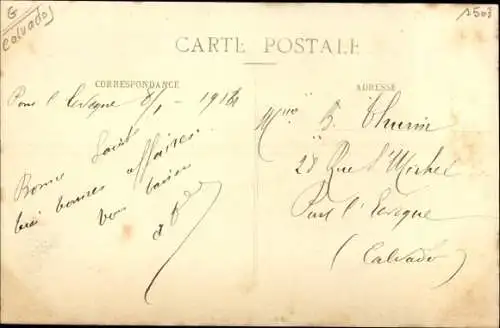 G
Calvados
CARTE POSTALE
CORRESPONDANCE
ADRESSE
Pont l'Evêque 8/1 - 1916
Bonne Santé
bonnes affaires
bon baiser
Mlle B. Thurin
28 Rue St Michel
Pont l'Eveque
(Calvados)